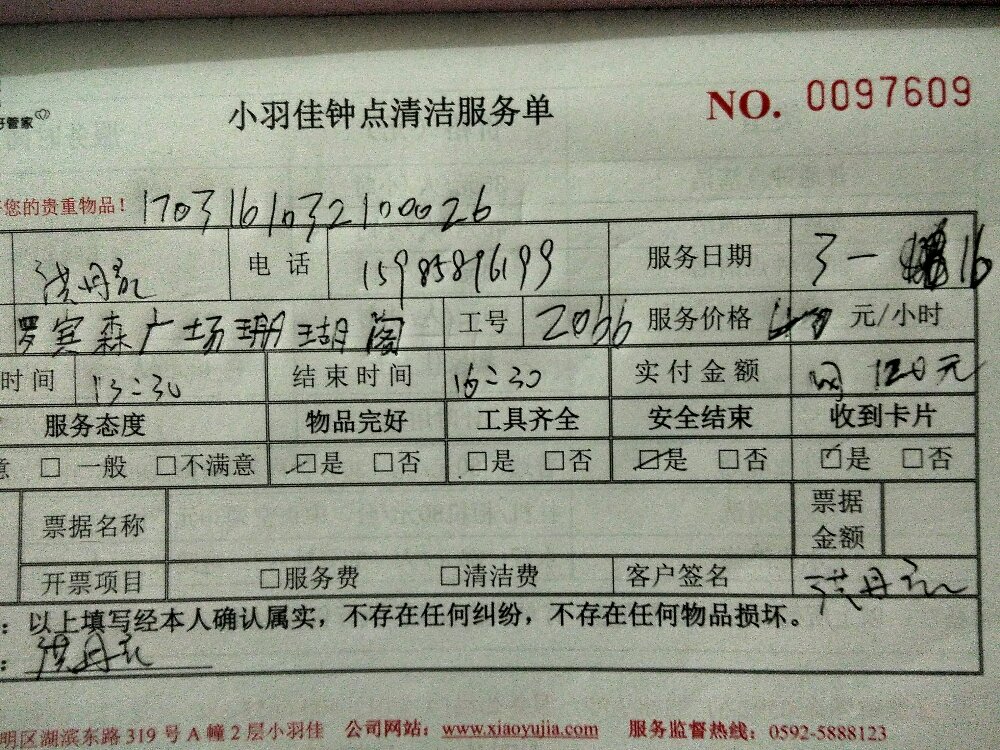 好管家
小羽佳钟点清洁服务单 NO. 0097609
您的贵重物品! 1703161032100026
电话 15985896199 服务日期 3-16
罗宾森广场珊瑚阁 工号 2066 服务价格 元/小时
时间 13:30 结束时间 16:30 实付金额 120元
服务态度 物品完好 工具齐全 安全结束 收到卡片
意 □ 一般 □不满意 ☑是 □否 □是 □否 ☑是 □否 ☑是 □否
票据名称 票据金额
开票项目 □服务费 □清洁费 客户签名
: 以上填写经本人确认属实,不存在任何纠纷,不存在任何物品损坏。
:
明区湖滨东路 319 号 A 幢 2 层小羽佳 公司网站: www.xiaoyujia.com 服务监督热线: 0592-5888123